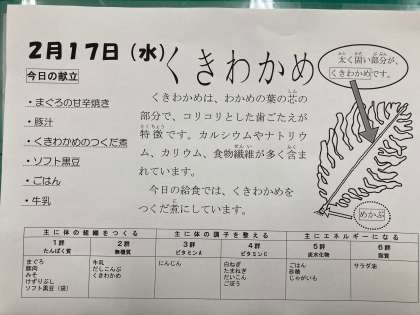 2月17日（水）
くきわかめ
太く固い部分が、
くきわかめです。
今日の献立
・まぐろの甘辛焼き
・豚汁
・くきわかめのつくだ煮
・ソフト黒豆
・ごはん
・牛乳
くきわかめは、わかめの葉の芯の
部分で、コリコリとした歯ごたえが
特徴です。カルシウムやナトリウ
ム、カリウム、食物繊維が多く含ま
れています。
今日の給食では、くきわかめを
つくだ煮にしています。
めかぶ
主に体の組織をつくる 主に体の調子を整える 主にエネルギーになる
1群 2群 3群 4群 5群 6群
たんぱく質 無機質 ビタミンA ビタミンC 炭水化物 脂質
まぐろ 牛乳 にんじん 白ねぎ ごはん サラダ油
豚肉 だしこんぶ たまねぎ 砂糖
みそ くきわかめ だいこん じゃがいも
けずりぶし ごぼう
ソフト黒豆（袋）